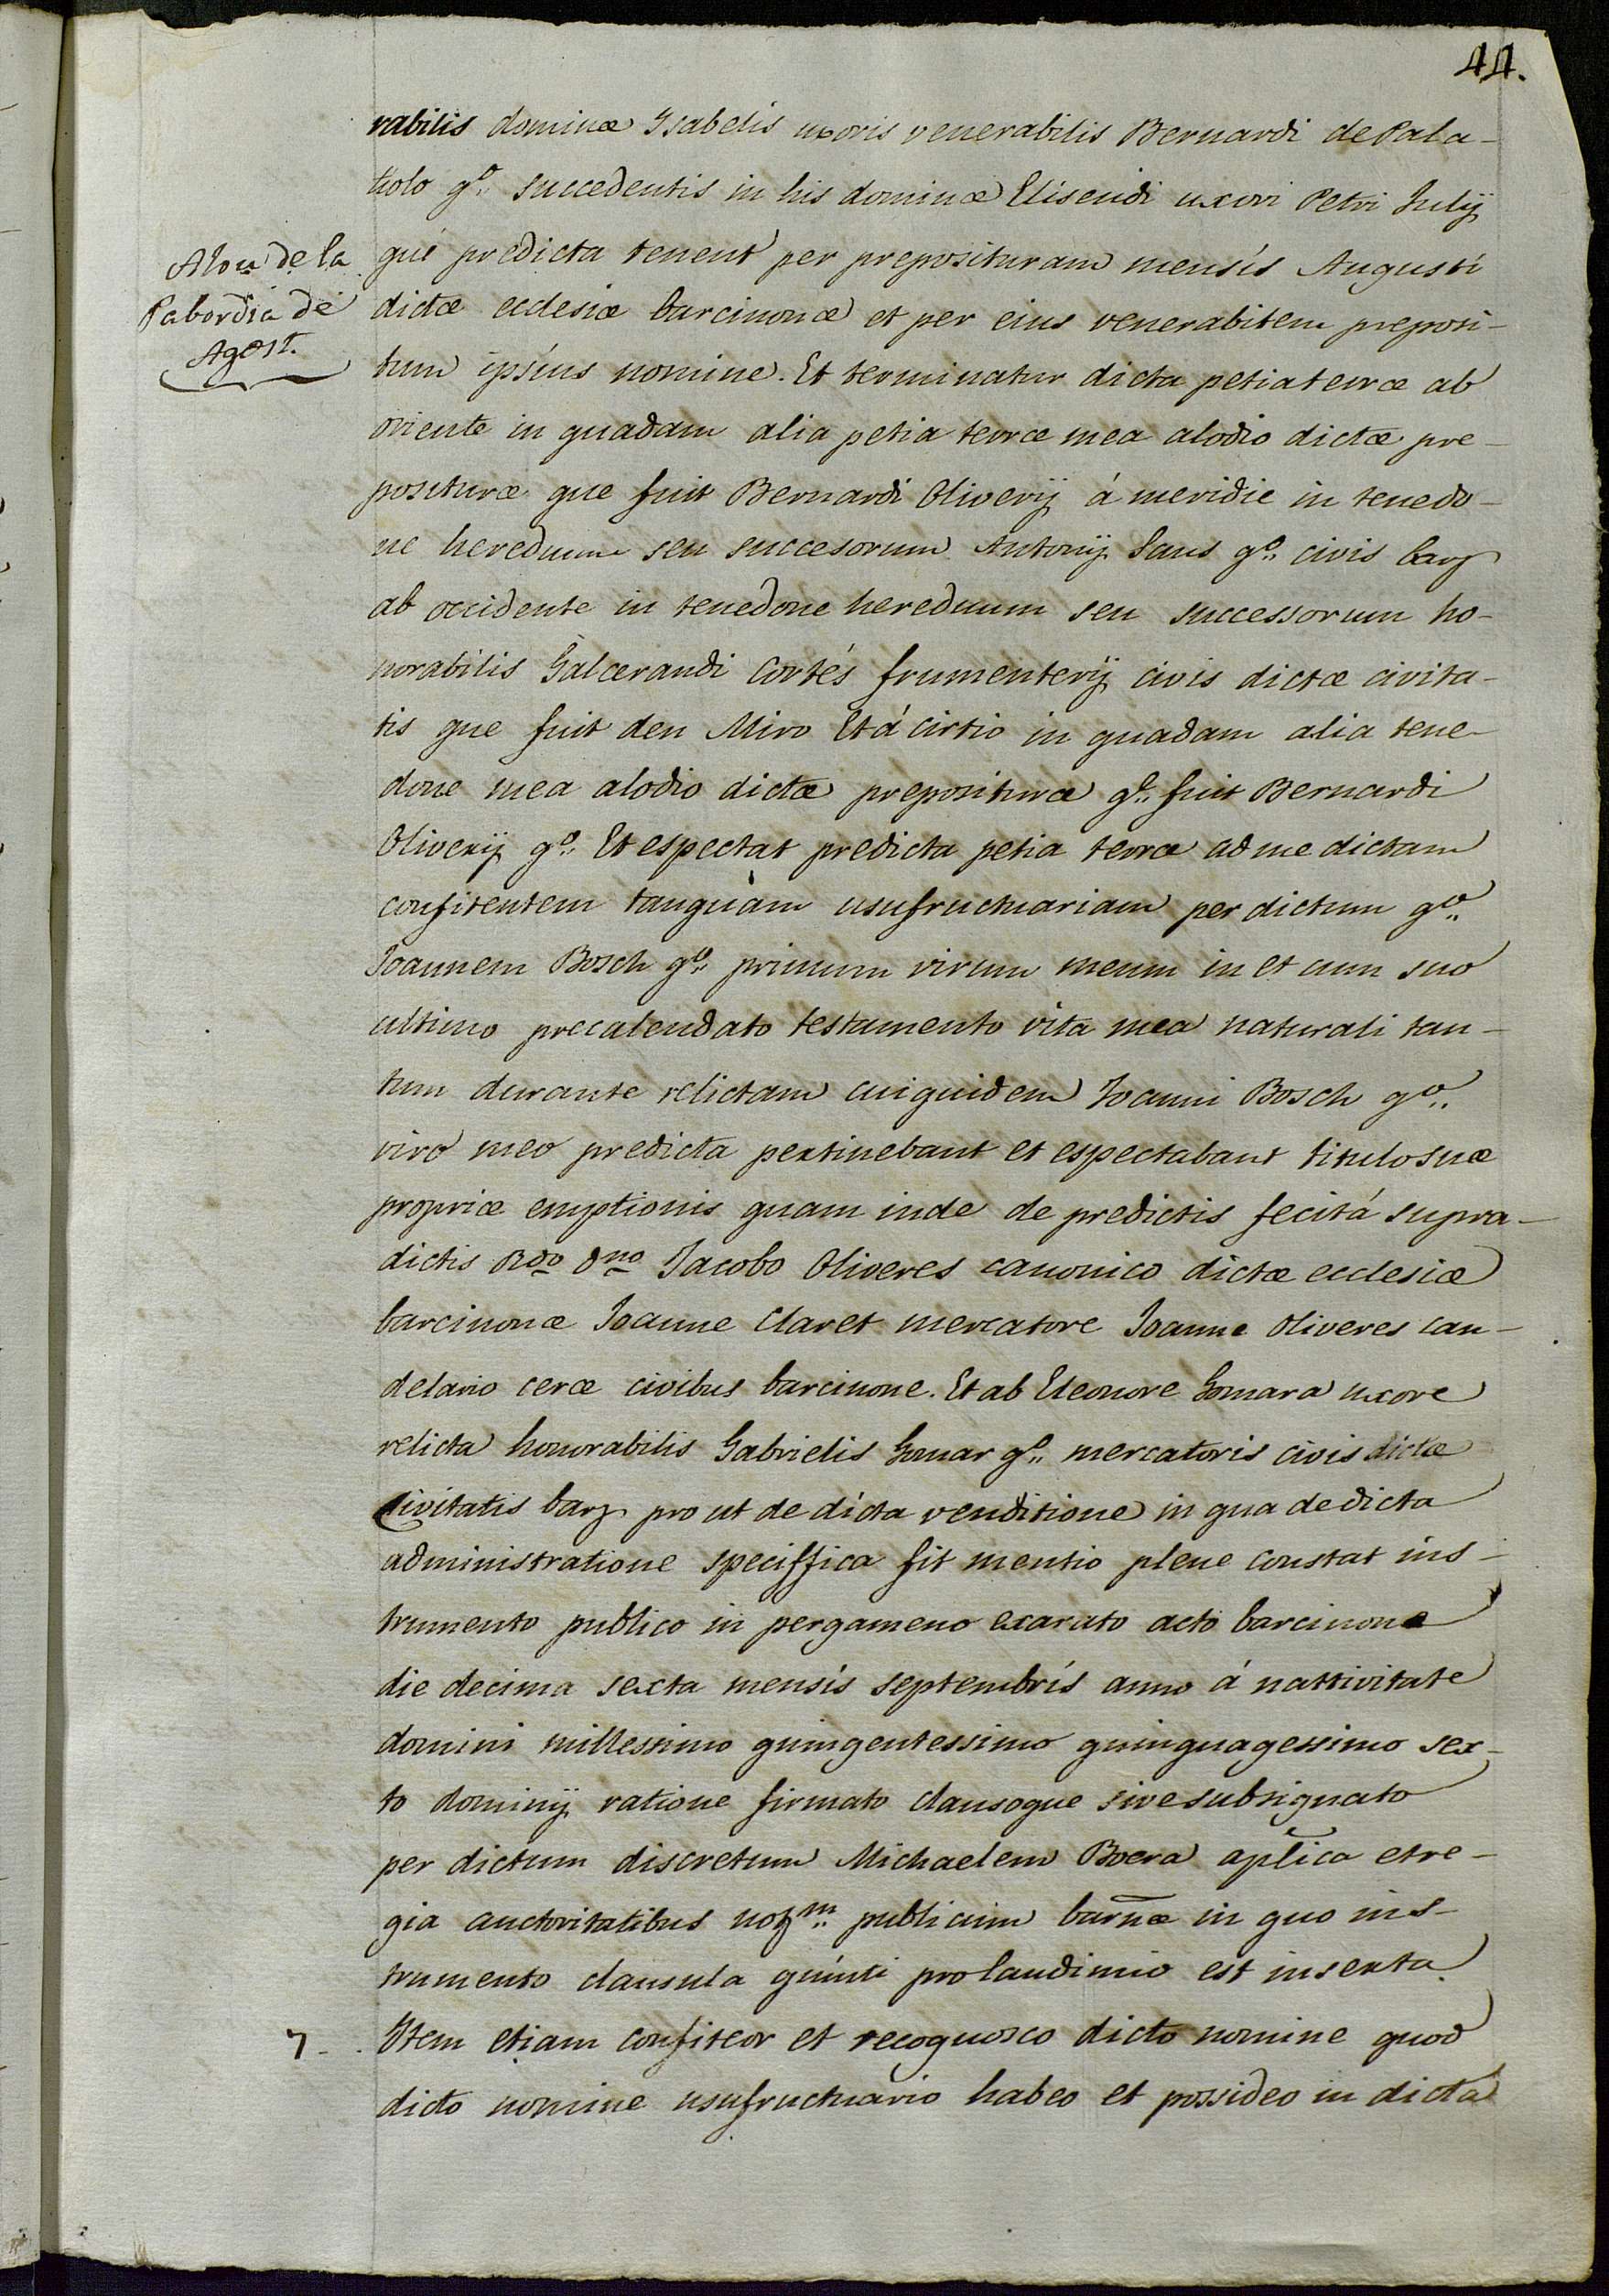 44.
rabilis dominæ Ysabelis uxoris venerabilis Bernardi de Pala-
tiolo qº succedentis in his dominæ Elisendi uxori Petri Julij
qué predicta tenent per preposituram mensís Augustí
dictæ ecclesiæ barcinonæ et per eius venerabilem preposi-
tum ipsíus nomine. Et terminatur dicta petia terræ ab
oriente in quadam alia petia terræ mea alodio dictæ pre-
posituræ que fuit Bernardi Oliverij á meridie in tenedo-
ne heredum seu succesorum Antonij Sans qº civis barȝ
ab occidente in tenedone hereduum seu successorum ho-
norabilis Galcerandi Cortés frumenterij civis dictæ civita-
tis que fuit den Miro Et á cirtio in quadam alia tene-
done mea alodio dictæ preposituræ qº fuit Bernardi
Oliverij qº Et espectat predicta petia terræ ad me dictam
confitentem tanquàm usufructuariam per dictum qº
Joannem Bosch qº primum virum meum in et cum suo
ultimo precalendato testamento vita mea naturali tan-
tum durante relictam cuiquidem Joanni Bosch qº
viro meo predicta pertinebant et espectabant titulo suæ
propriæ emptionis quam inde de predictis fecit á supra-
dictis Rdo dno Jacobo Oliveres canonico dictæ ecclesiæ
barcinonæ Joanne Claret mercatore Joanne Oliveres can-
delario ceræ civibus barcinone. Et ab Eleonore Gomara uxore
relicta honorabilis Gabrielis Gomar qº mercatoris civis dictæ
civitatis barȝ pro ut de dícta venditione in qua de dicta
administratione speciffica fit mentio plene constat ins-
trumento publico in pergameno exarato acto barcinonæ
die decima sexta mensís septembrís anno á nattivitate
domini millessimo quingentessimo quinquagessimo sex-
to dominij ratione firmato clausoque sive subsignato
per dictum discretum Michaelem Boera aplica et re-
gia auctoritatibus notm publicum barnæ in quo ins-
trumento clausula quínti pro laudimio est inserta.
7. Item etiam confiteor et recognosco dicto nomine quod
dicto nomine usufructuario habeo et possideo in dicta
Alou de la
Pabordía dé
Agost.